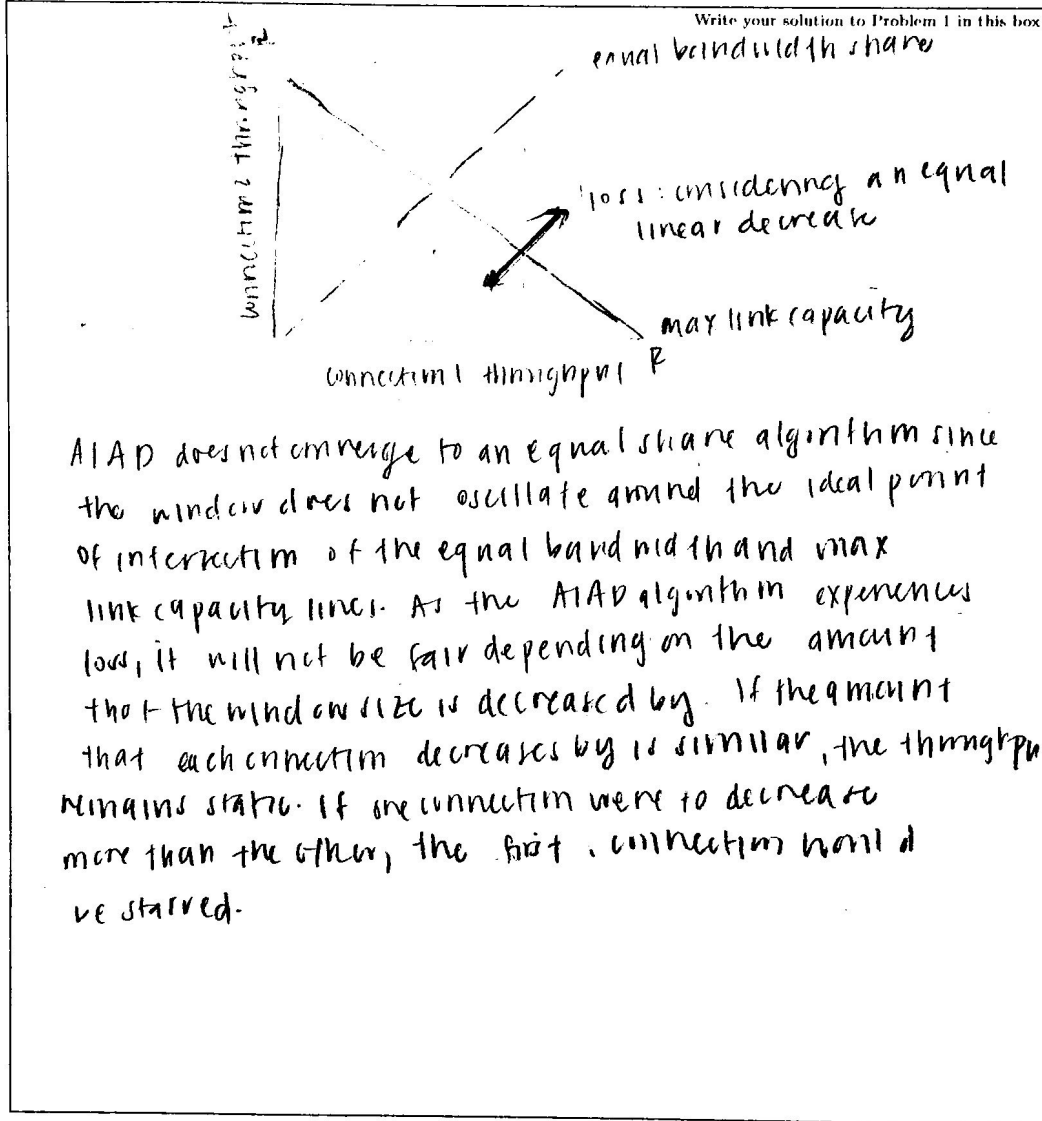 Write your solution to Problem 1 in this box
R
equal bandwidth share
connection 2 throughput
loss: considering an equal
linear decrease
max link capacity
R
connection 1 throughput
AIAD does not converge to an equal share algorithm since
the window does not oscillate around the ideal point
of intersection of the equal bandwidth and max
link capacity lines. As the AIAD algorithm experiences
loss, it will not be fair depending on the amount
that the window size is decreased by. If the amount
that each connection decreases by is similar, the throughpu
remains static. If one connection were to decrease
more than the other, the first connection would
be starved.